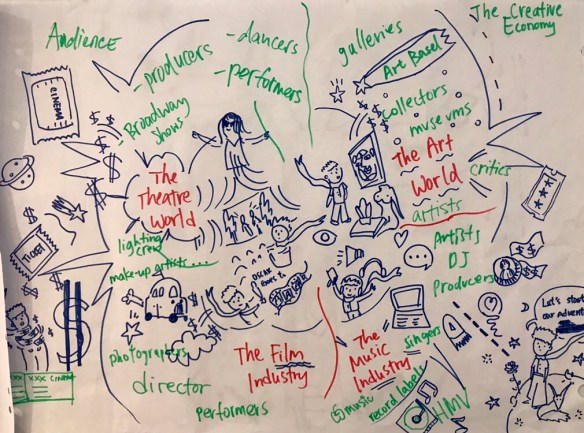 The Creative
Economy
Audience
- producers
- dancers
- performers
galleries
Art Basel
CINEMA
- Broadway
Shows
collectors
museums
The
Theatre
World
The Art
World
critics
artists
lighting
crew
make-up artists.....
TICKET
Artists
DJ
Producers
OSCAR
goes to
Let's start
our advent
photographers
director
The Film
Industry
performers
The
Music
Industry
singers
music
record labels
HMV
XXX cinema